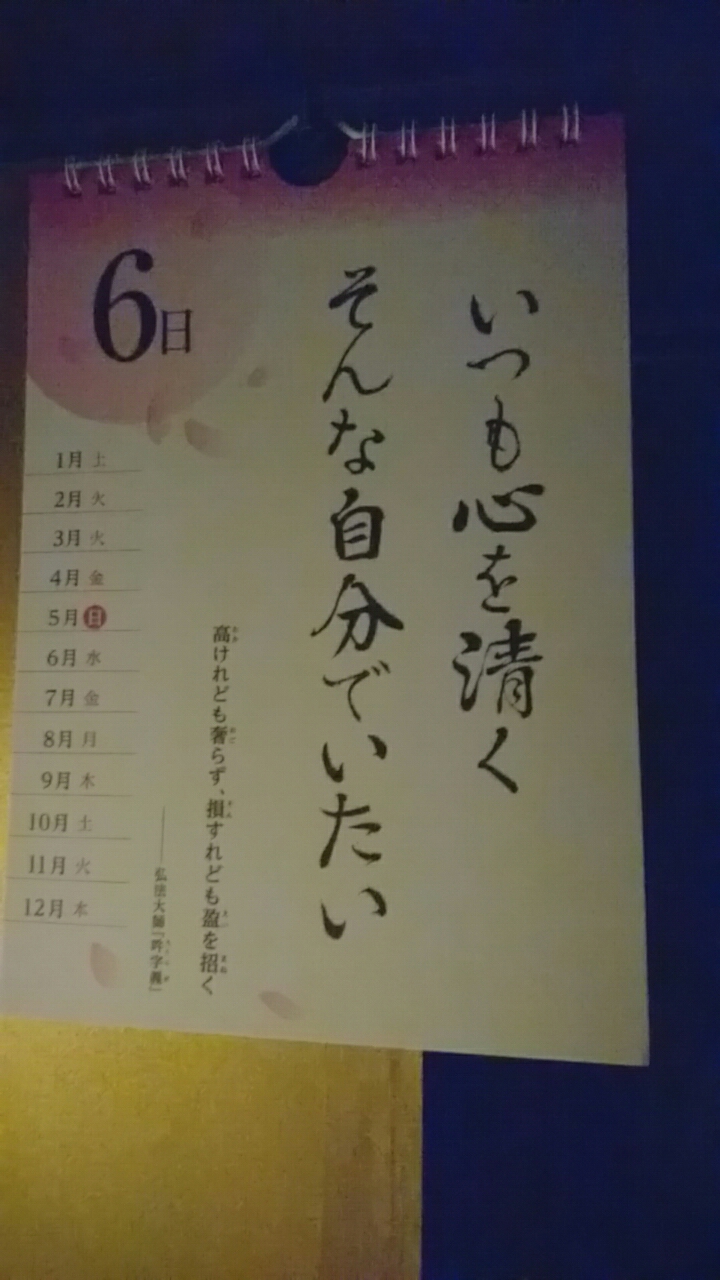 6日
いつも心を清く
そんな自分でいたい
高けれども奢らず、損すれども盈を招く
弘法大師『吽字義』
1月 土
2月 火
3月 火
4月 金
5月 日
6月 水
7月 金
8月 月
9月 木
10月 土
11月 火
12月 木